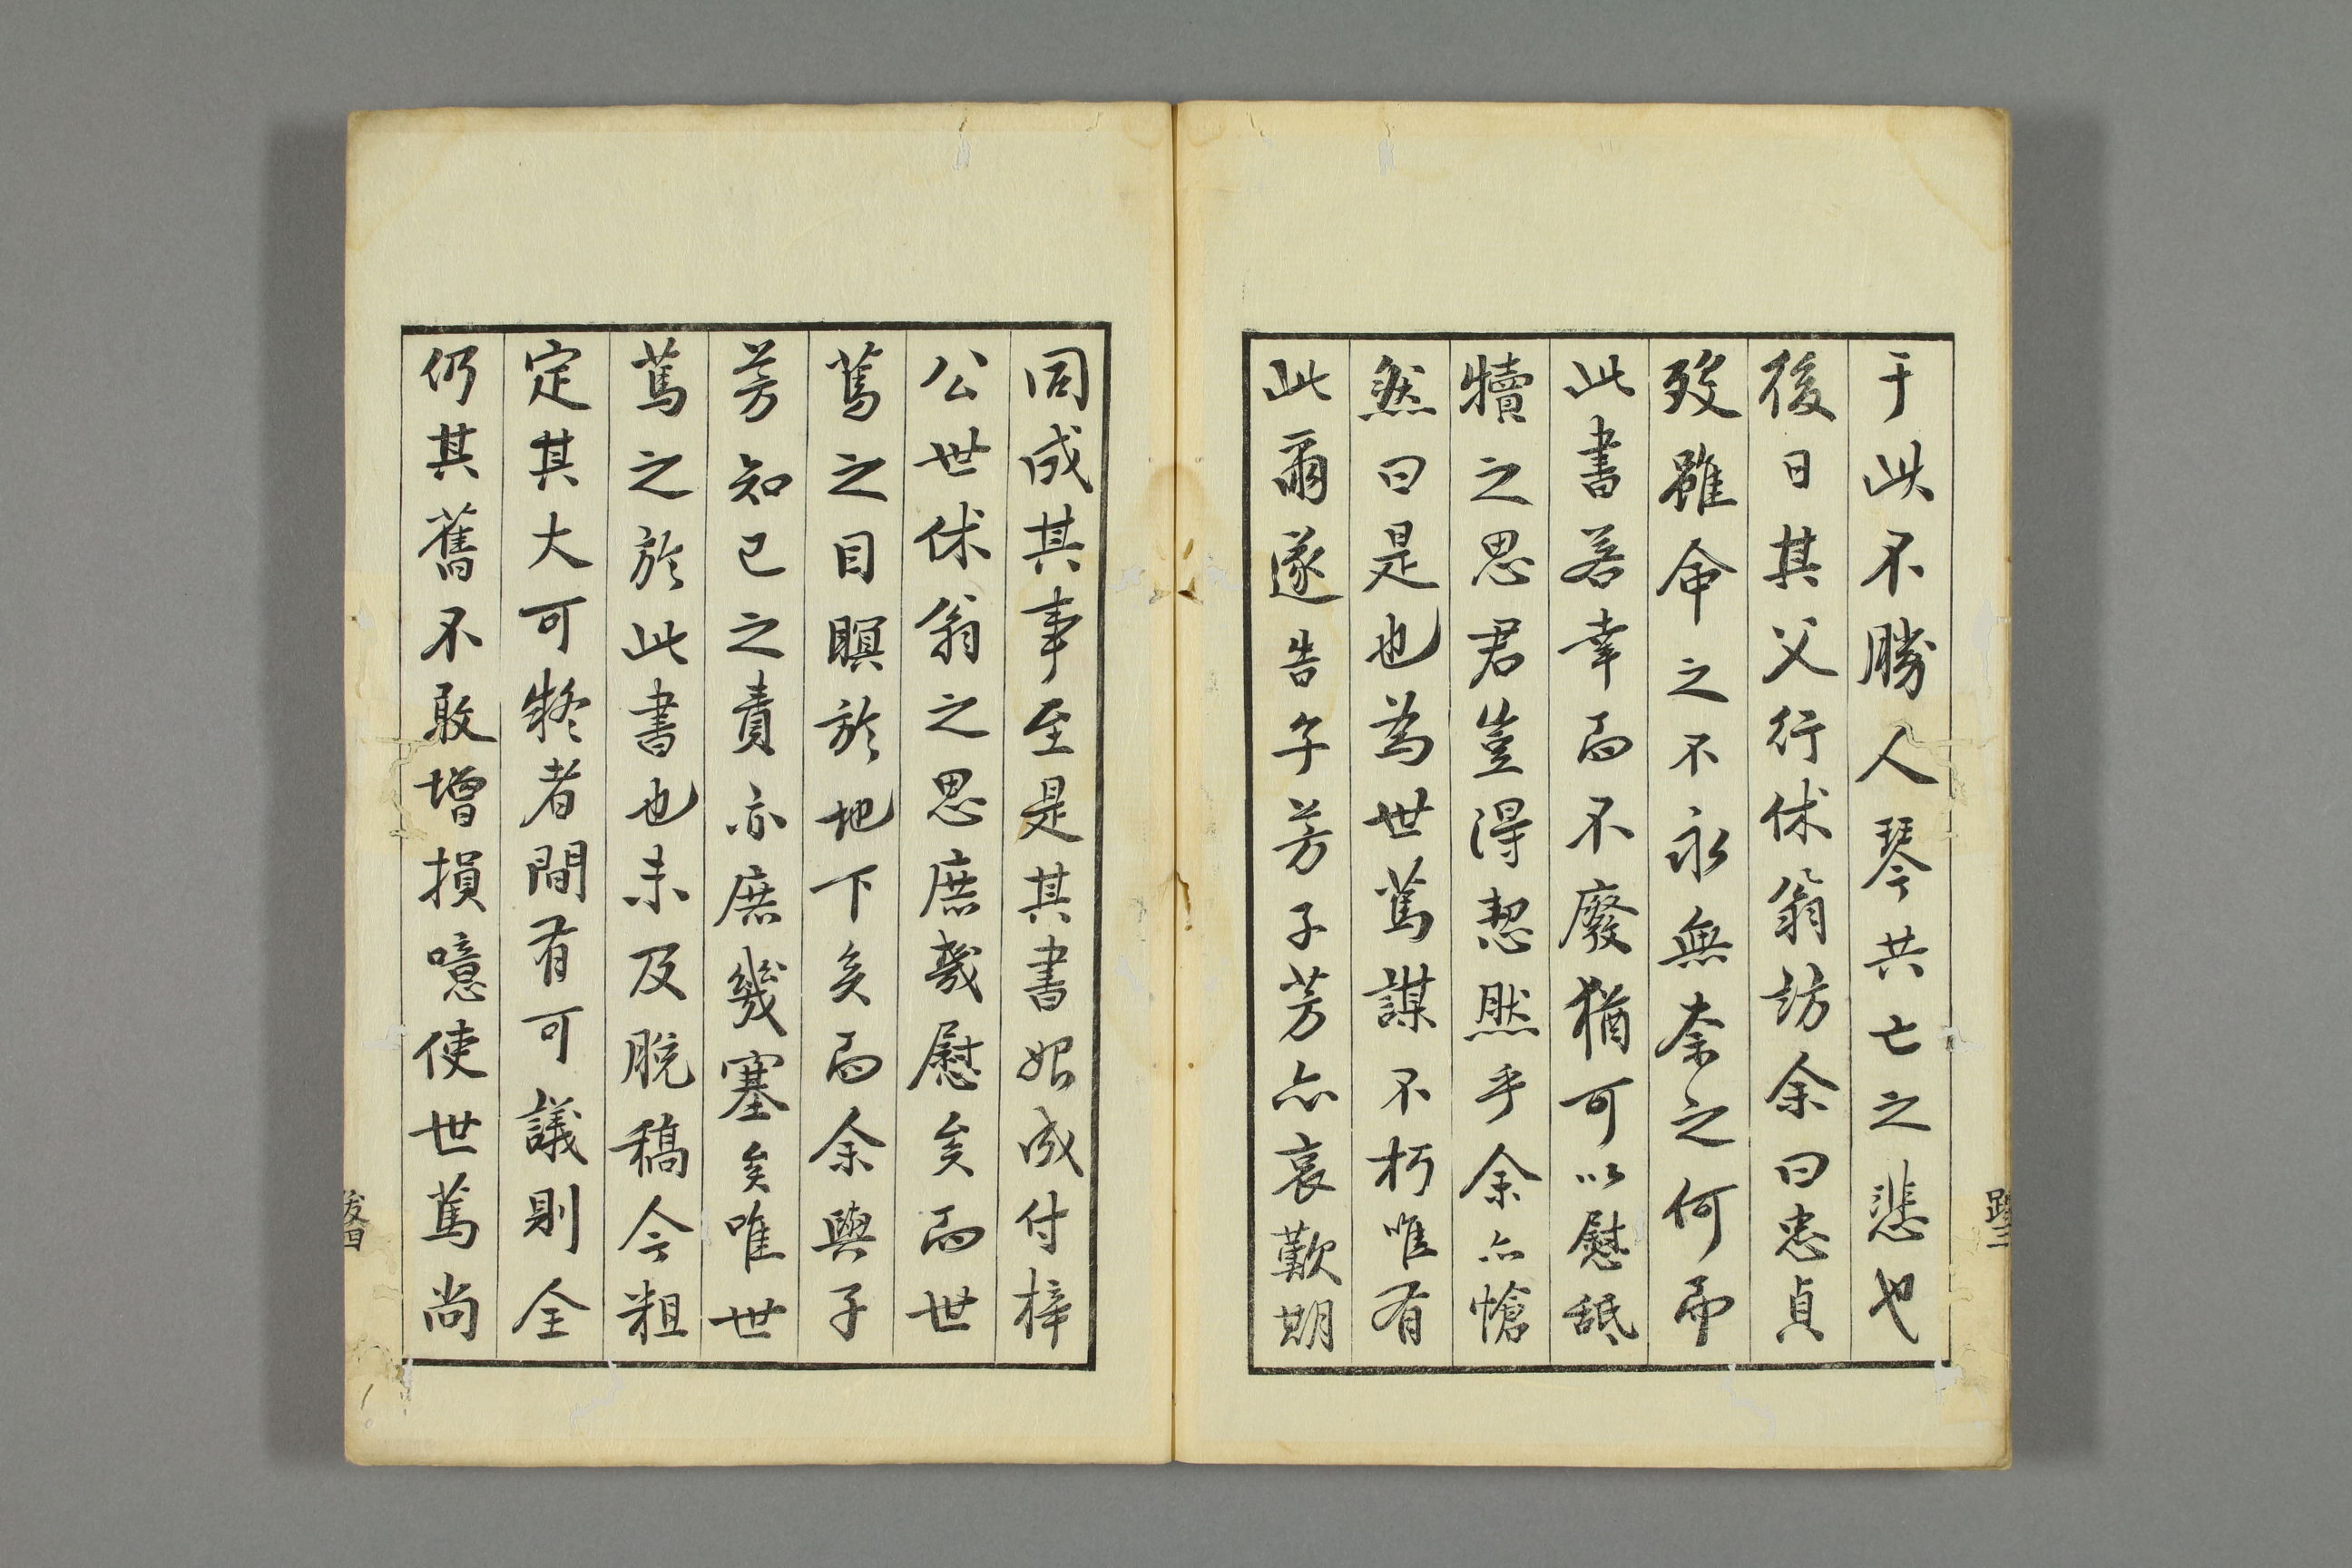 于此不勝人琴共亡之悲也
後日其父行休翁訪余曰忠貞
歿雖命之不永無奈之何而
此書若幸而不廢猶可以慰舐
犢之思君豈得恝然乎余亦愴
然曰是也為世篤謀不朽唯有
此爾遂告子芳子芳亦哀歎期
同成其事至是其書始成付梓
公世休翁之思庶幾慰矣而世
篤之目瞑於地下矣而余與子
芳知己之責亦庶幾塞矣唯世
篤之於此書也未及脫稿今粗
定其大可疑者間有可議則全
仍其舊不敢增損噫使世篤尚